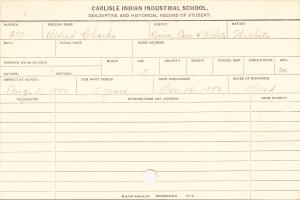 CARLISLE INDIAN INDUSTRIAL SCHOOL.
DESCRIPTIVE AND HISTORICAL RECORD OF STUDENT.
NUMBER ENGLISH NAME AGENCY NATION
Alfred Charles Kiowa, Com & Wichita Wichita
BAND INDIAN NAME HOME ADDRESS
PARENTS LIVING OR DEAD BLOOD AGE HEIGHT WEIGHT FORCED INSP. FORCED EXPIR. SEX
FATHER MOTHER
ARRIVED AT SCHOOL FOR WHAT PERIOD DATE DISCHARGED CAUSE OF DISCHARGE
1882 Years Dec 16, 1882 Died
TO COUNTRY PATRONS NAME AND ADDRESS FROM COUNTRY